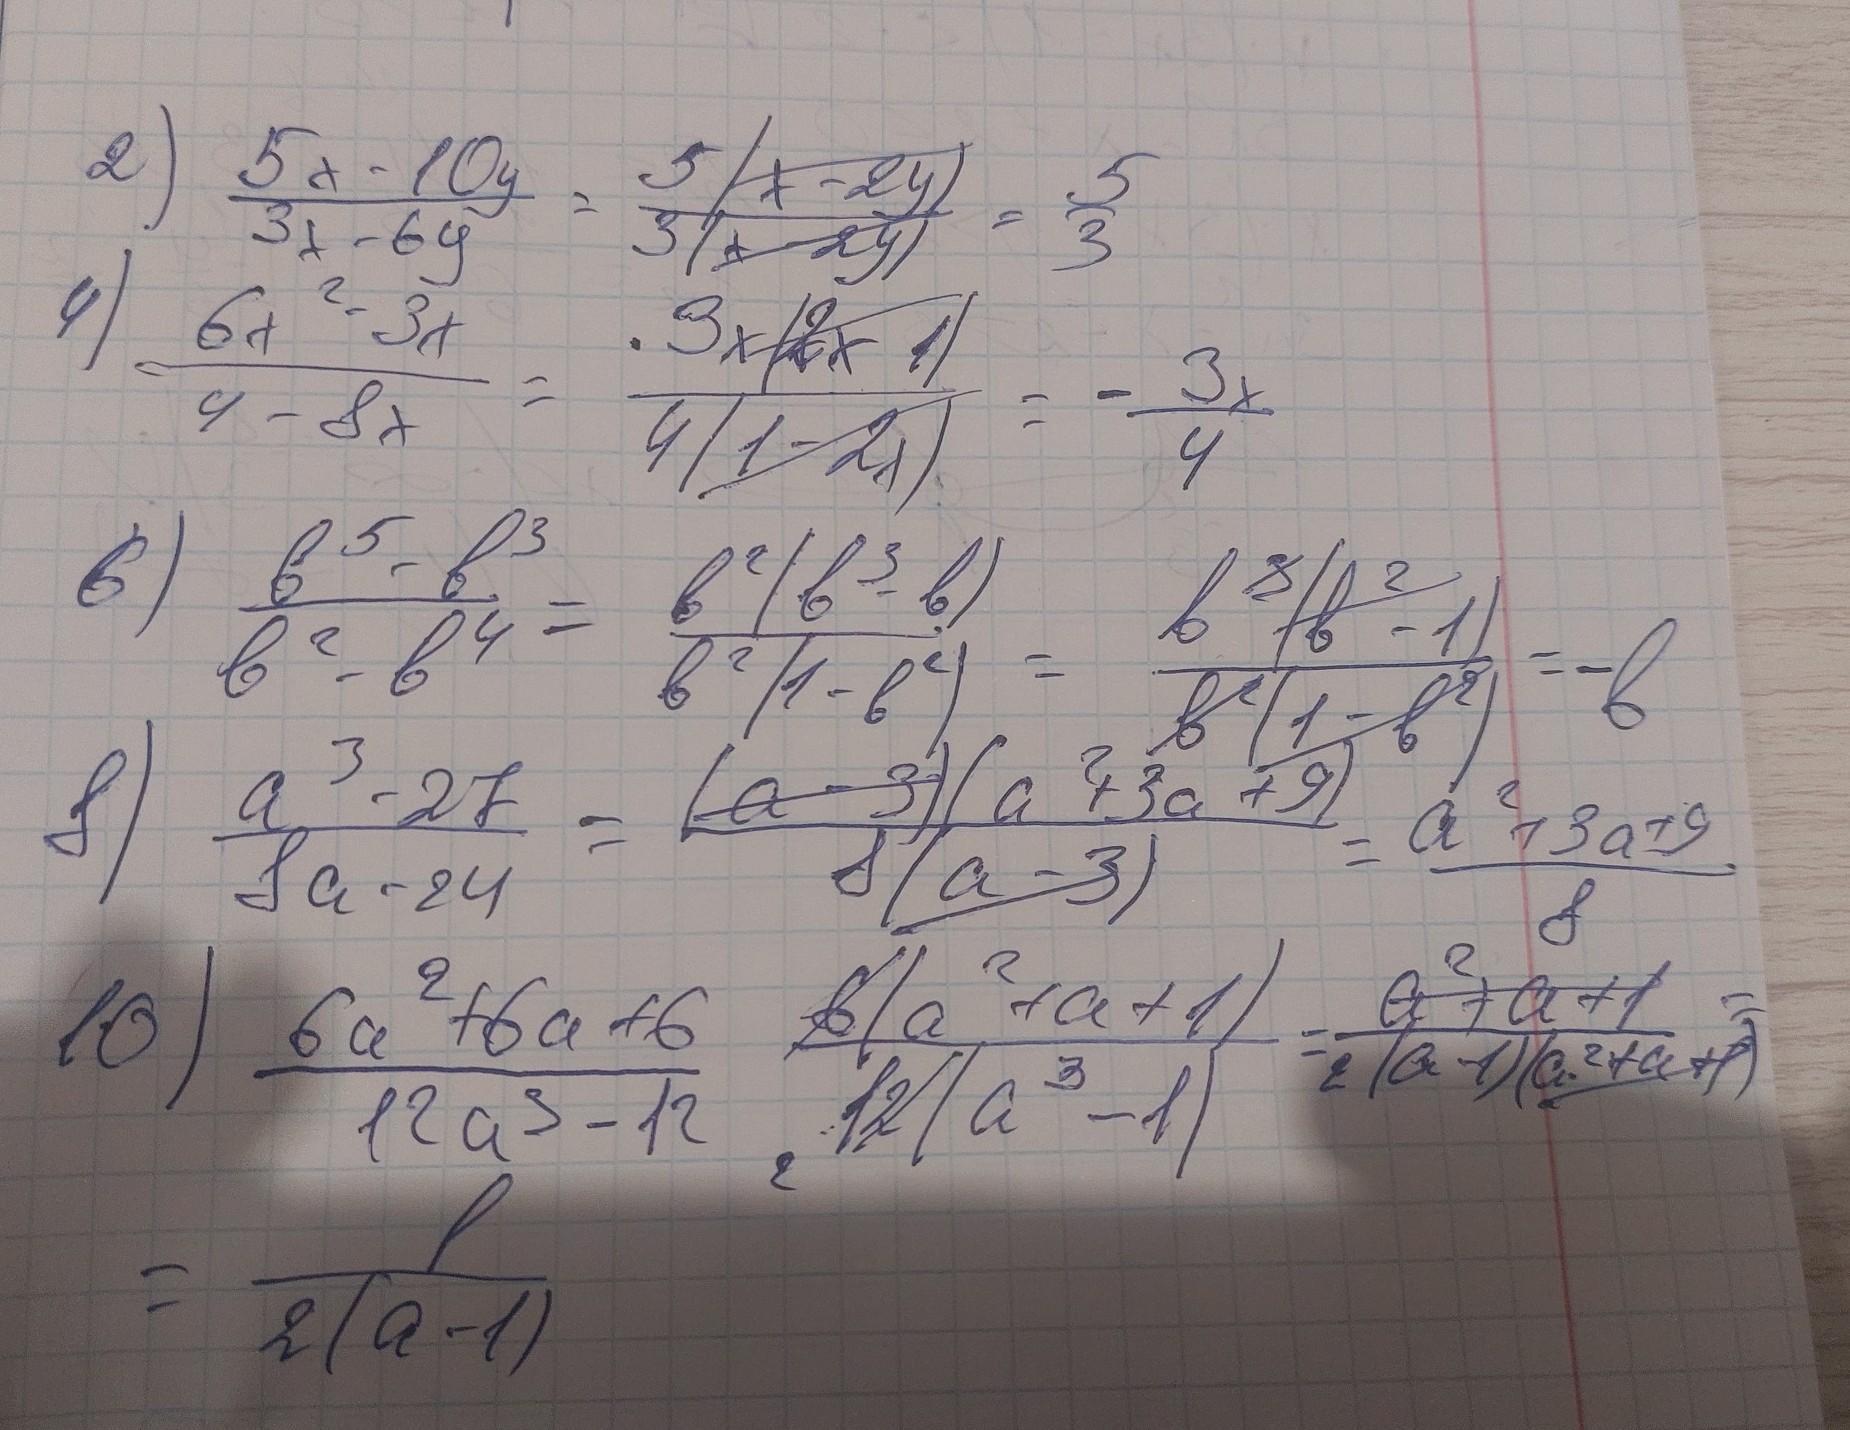 2) (5x - 10y)/(3x - 6y) = 5(x - 2y)/3(x - 2y) = 5/3
4) (6x² - 3x)/(4 - 8x) = 3x(2x 1)/4(1 - 2x) = - 3x/4
6) (b⁵ - b³)/(b² - b⁴) = b²(b³ - b)/b²(1 - b²) = b³(b² - 1)/b²(1 - b²) = -b
8) (a³ - 27)/(8a - 24) = (a - 3)(a² + 3a + 9)/8(a - 3) = (a² + 3a + 9)/8
10) (6a² + 6a + 6)/(12a³ - 12) 6(a² + a + 1)/12(a³ - 1) 2 = (a² + a + 1)/2(a - 1)(a² + a + 1) =
= 1/2(a - 1)